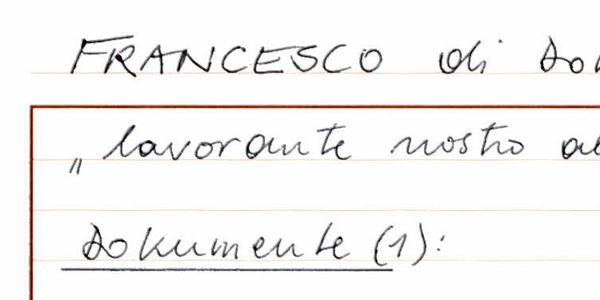 FRANCESCO di
„lavorante nostro
Dokumente (1):